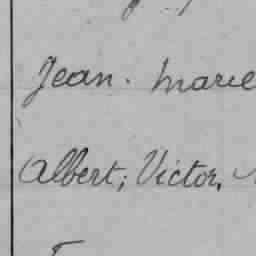 Jean. Marie
Albert; Victor,